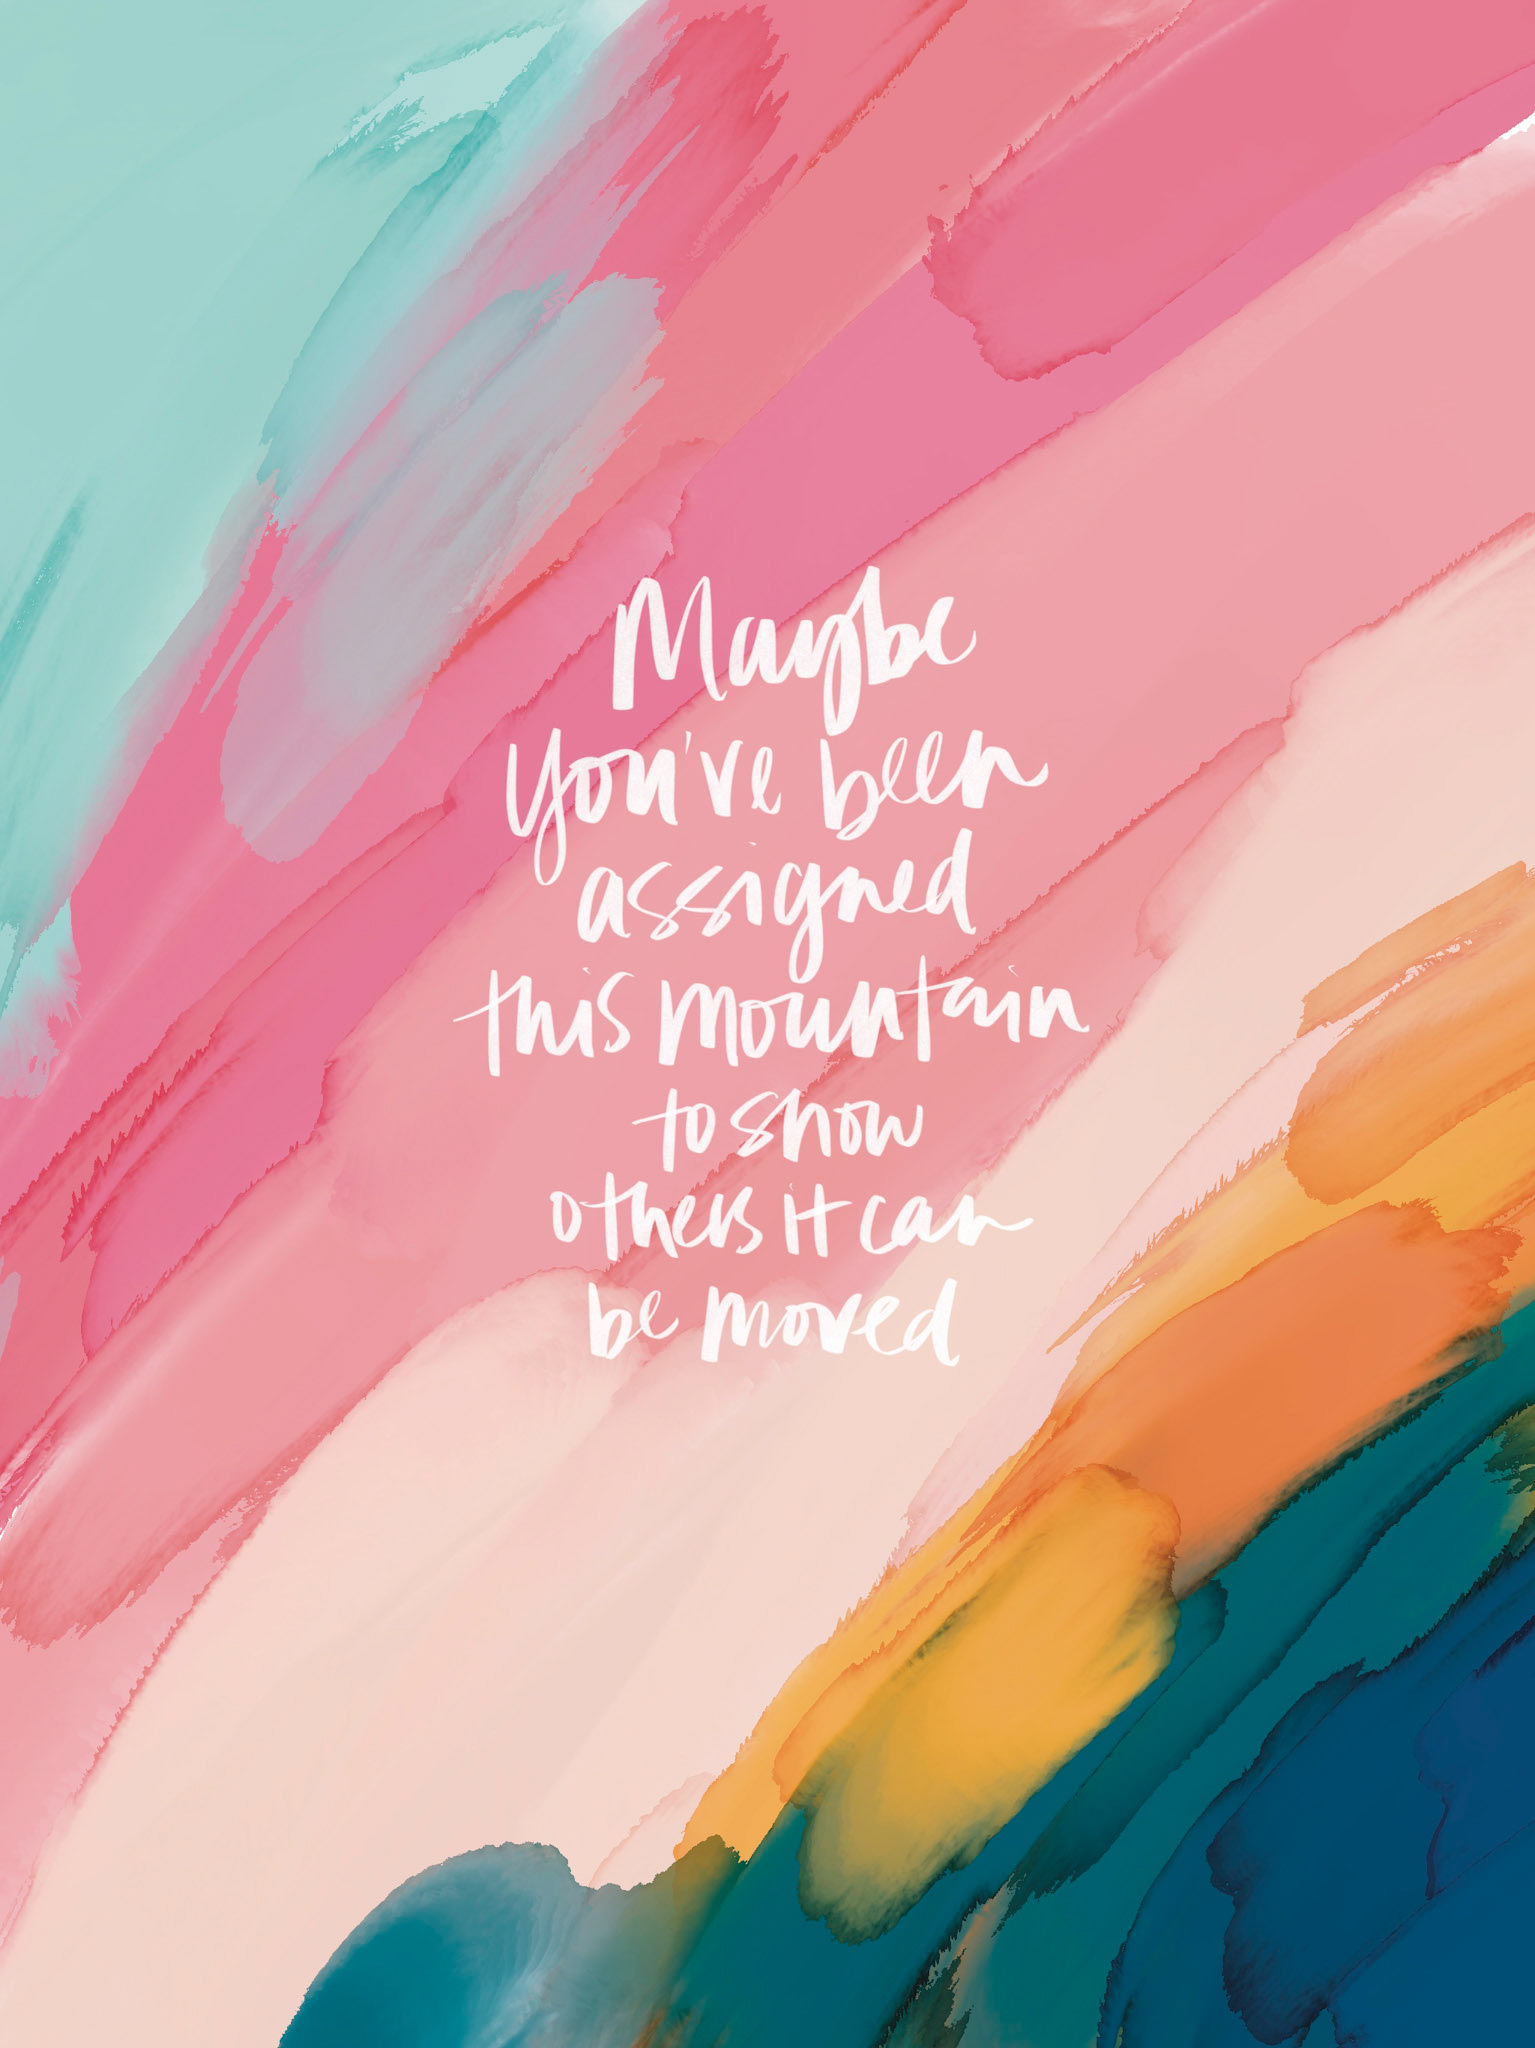 Maybe
you've been
assigned
this mountain
to show
others it can
be moved